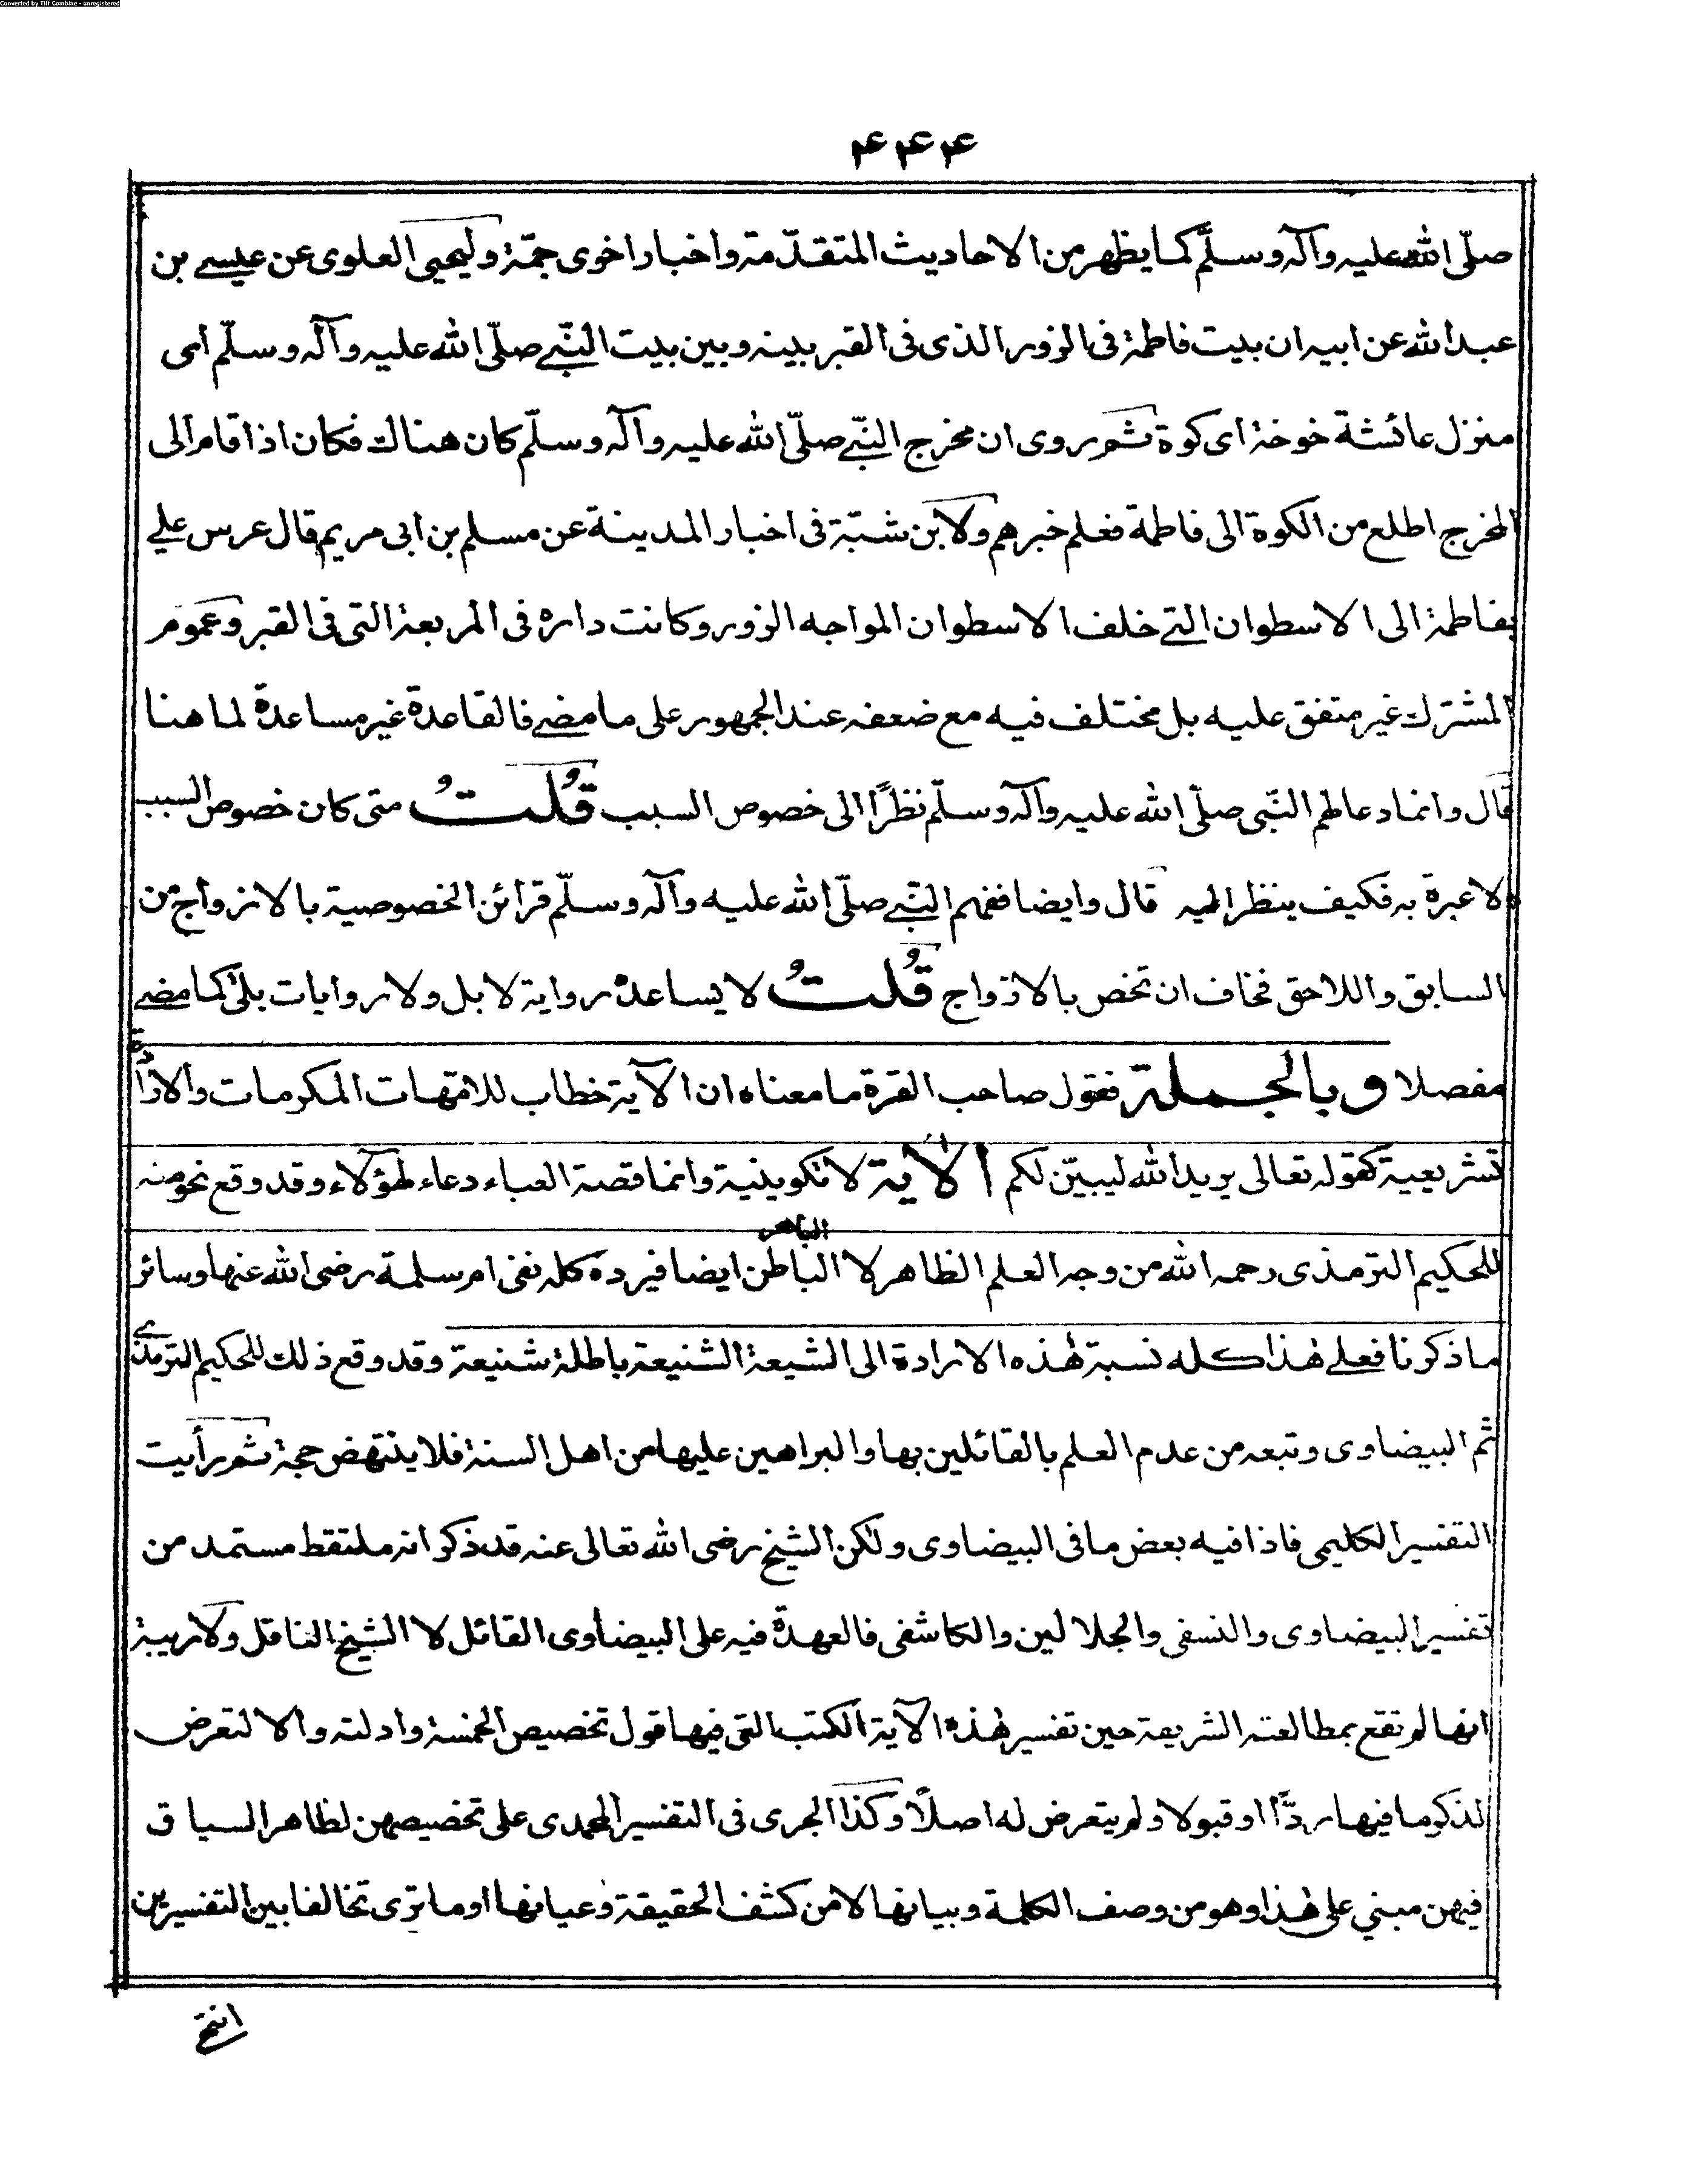 Converted by Tiff Combine - unregistered
۴۴۴
صلّى الله عليه وآله وسلّم كما يظهر من الاحاديث المتقدّمة واخبار اخرى جمّة وليحيى العلوى عن عيسے بن
عبد الله عن ابيه ان بيت فاطمة فى الزور الذى فى القبر بينه وبين بيت النّبے صلّى الله عليه وآله وسلّم اى
منزل عائشة خوخة اى كوة ثم روى ان مخرج النّبے صلّى الله عليه وآله وسلّم كان هناك فكان اذا قام الى
المخرج اطلع من الكوة الى فاطمة فعلم خبرهم ولابن شبّة فى اخبار المدينة عن مسلم بن ابى مريم قال عرس علے
بفاطمة الى الاسطوان التے خلف الاسطوان المواجه الزور وكانت داره فى المربعة التى فى القبر وعموم
المشترك غير متفق عليه بل مختلف فيه مع ضعفه عند الجمهور على ما مضے فالقاعدة غير مساعدة لما هنا
قال وانما دعا لهم النّبى صلّى الله عليه وآله وسلّم نظرًا الى خصوص السبب قُلتُ متى كان خصوص السبب
لا عبرة به فكيف ينظر اليه قال وايضا ففهم النّبے صلّى الله عليه وآله وسلّم قرائن الخصوصية بالازواج من
السابق واللاحق فخاف ان تخص بالازواج قُلتُ لا يساعده رواية لا بل ولا روايات بلى كما مضے
مفصلا وبالجملة فقول صاحب القرة ما معناه ان الآية خطاب للامّهات المكرمات والارادة
تشريعية كقوله تعالى يريد الله ليبيّن لكم الآية لا تكوينية وانما قصة العباء دعاء لهؤلاء وقد وقع نحو منه
للحكيم الترمذى رحمه الله من وجه العلم الظاهر لا الباطن ايضا فيرده كله نفى ام سلمة رضى الله عنها وسائر
ما ذكرنا فعلے هذا كله نسبة هذه الارادة الى الشيعة الشنيعة باطلة شنيعة وقد وقع ذلك للحكيم الترمذے
ثم البيضاوى وتبعه من عدم العلم بالقائلين بها والبراهين عليها من اهل السنة فلا ينتهض حجة ثم رأيت
التفسير الكليمى فاذا فيه بعض ما فى البيضاوى ولكن الشيخ رضى الله تعالى عنه قد ذكر انه ملتقط مستمد من
تفسير البيضاوى والنسفى والجلالين والكاشفى فالعهدة فيه على البيضاوى القائل لا الشيخ الناقل ولا ريبة
انها لم تقع بمطالعته الشريفة حين تفسير هذه الآية الكتب التى فيها قول تخصيص الخمسة وادلته والا لتعرض
لذكر ما فيها ردًّا او قبولا ولم يتعرض له اصلاً وكذا الجرى فى التفسير المحمدى على تخصيصهن لظاهر السياق
فيهن مبني على هذا وهو من وصف الكلمة وبيانها لا من كشف الحقيقة وعيانها اوما ترى تخالفا بين التفسيرين